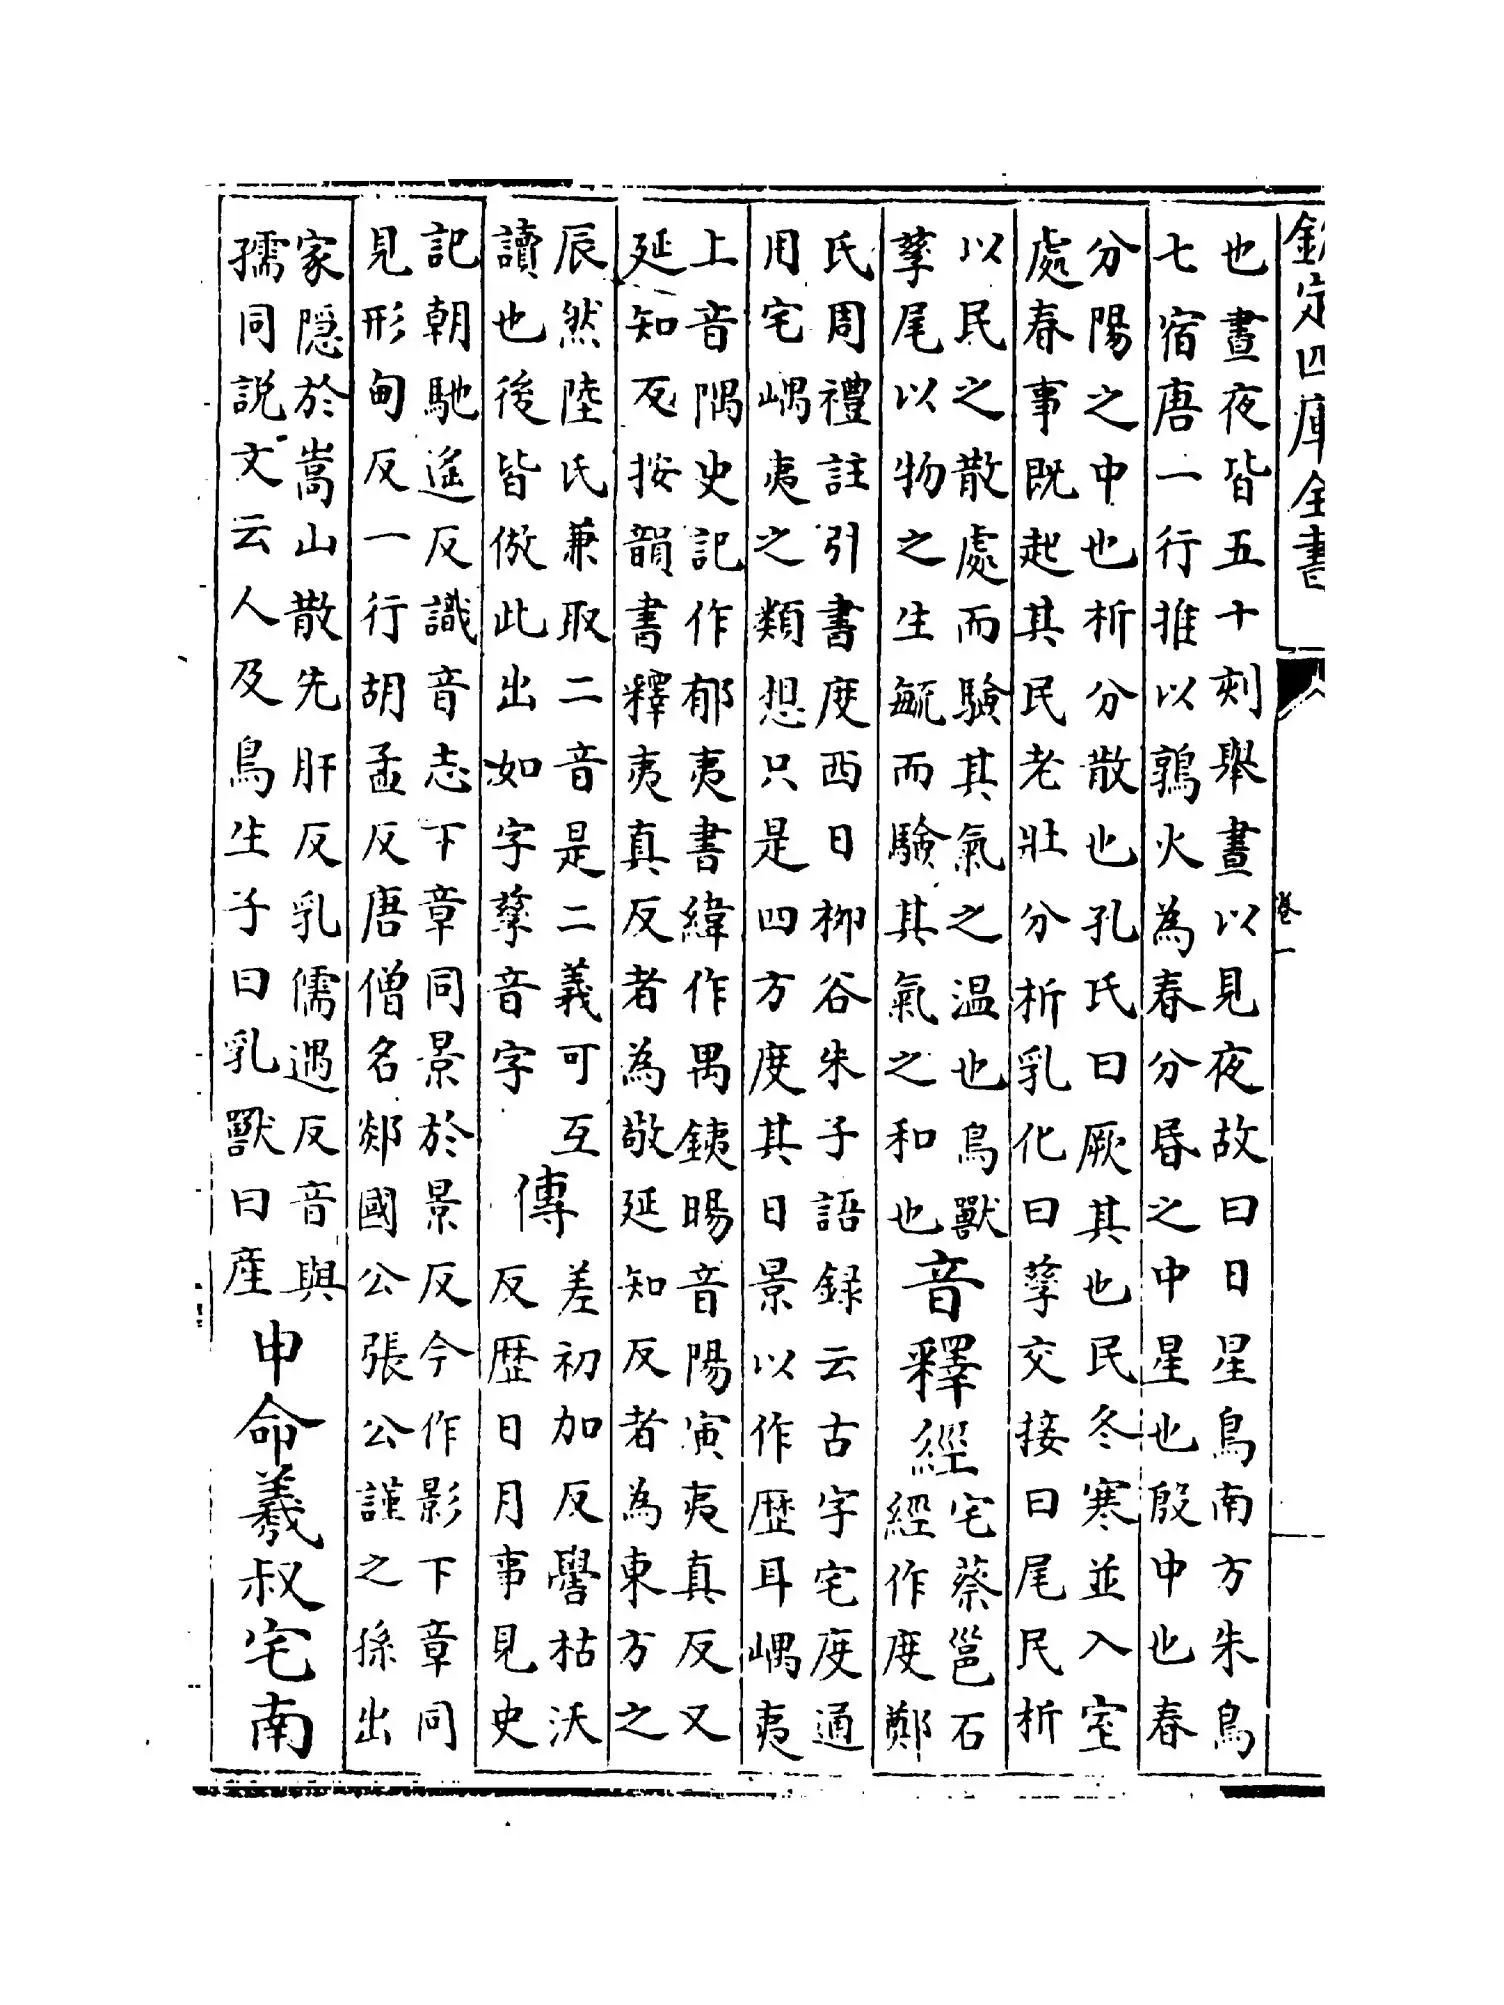 欽定四庫全書
卷一
也晝夜皆五十刻舉晝以見夜故曰日星鳥南方朱鳥
七宿唐一行推以鶉火為春分昏之中星也殷中也春
分陽之中也析分散也孔氏曰厥其也民冬寒並入室
處春事既起其民老壯分析乳化曰孳交接曰尾民析
以民之散處而驗其氣之温也鳥獸
孳尾以物之生毓而驗其氣之和也
音釋經
宅蔡邕石
經作度鄭
氏周禮註引書度西日栁谷朱子語録云古字宅度通
用宅嵎夷之類想只是四方度其日景以作歴耳嵎夷
上音隅史記作郁夷書緯作禺銕暘音陽寅夷真反又
延知反按韻書釋夷真反者為敬延知反者為東方之
辰然陸氏兼取二音是二義可互
讀也後皆倣此出如字孳音字
傳
差初加反嚳枯沃
反歴日月事見史
記朝馳遥反識音志下章同景於景反今作影下章同
見形甸反一行胡孟反唐僧名郯國公張公謹之孫出
家隠於嵩山散先肝反乳儒遇反音與
孺同説文云人及鳥生子曰乳獸曰産
申命羲叔宅南